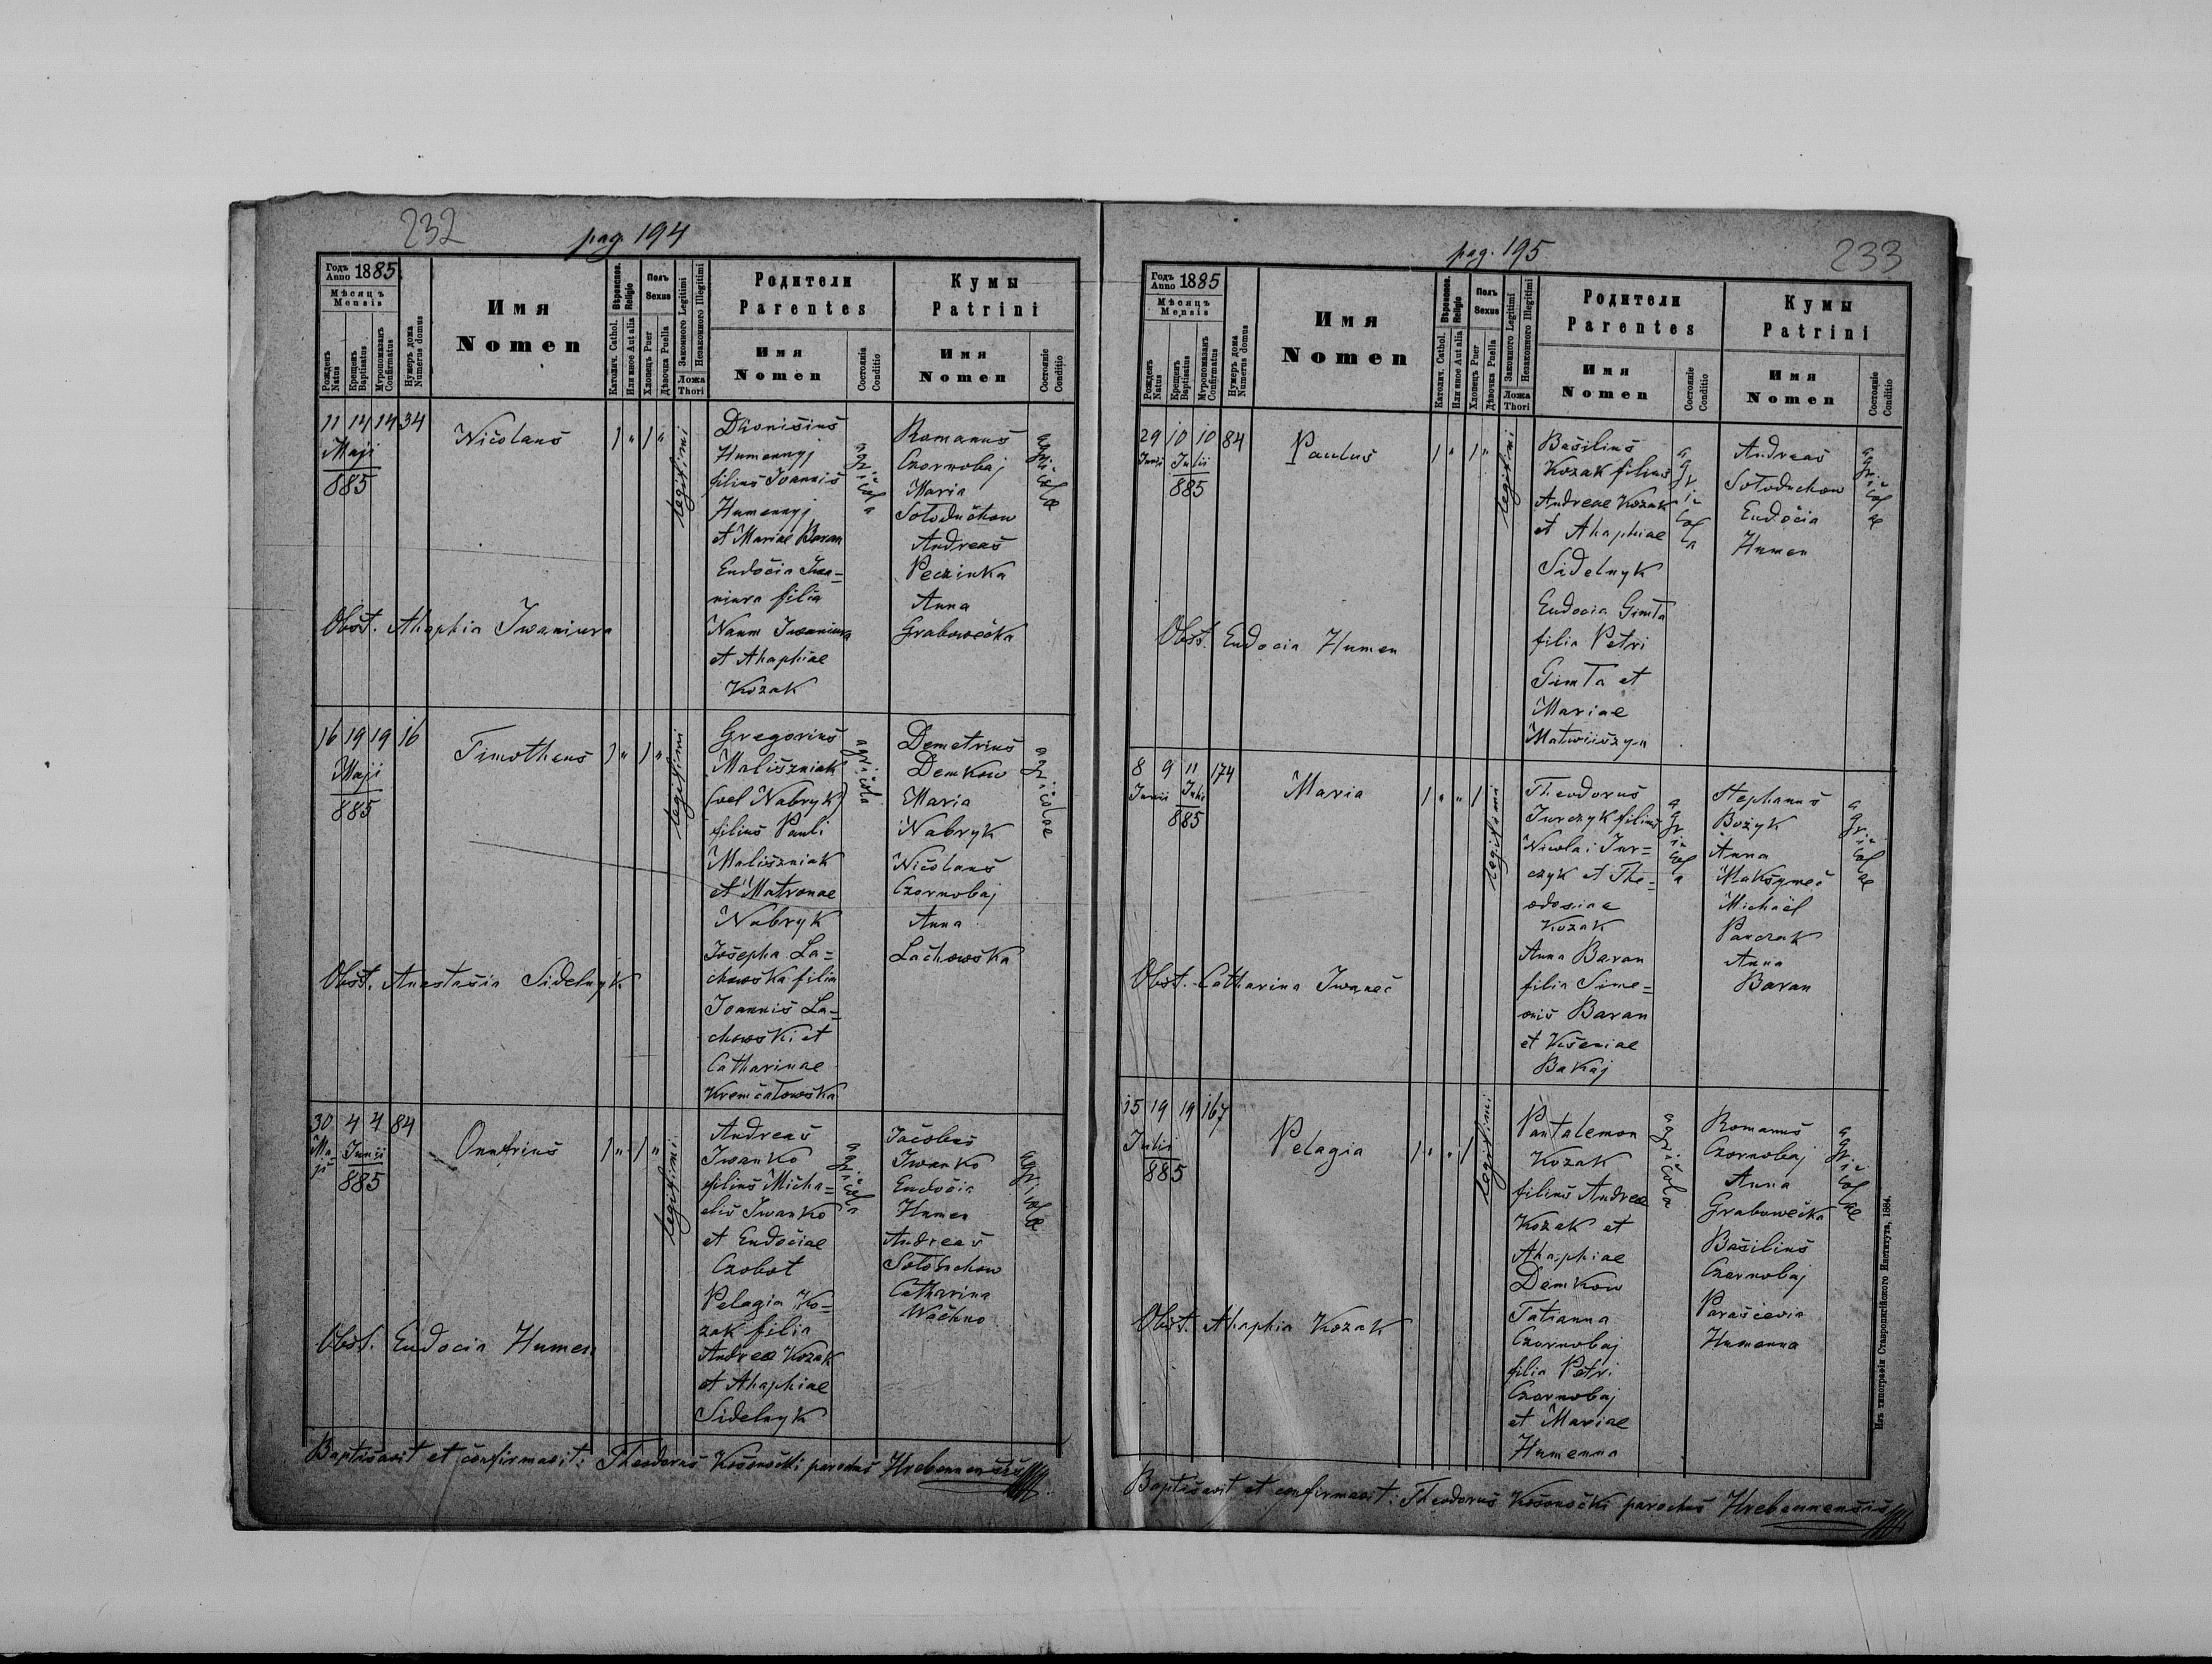 232
pag. 194
Годъ
Anno 1885
Мѣсяцъ
Mensis
Рожденъ
Natus
Крещенъ
Baptisatus
Мѵропомазанъ
Confirmatus
Нумеръ дома
Numerus domus
Имя
Nomen
Вѣроиспов.
Religio
Католич. Cathol.
Или иное Aut alia
Полъ
Sexus
Хлопецъ Puer
Дѣвочка Puella
Законного Legitimi
Незаконного Illegitimi
Ложа
Thori
Родители
Parentes
Имя
Nomen
Состояніе
Conditio
Кумы
Patrini
Имя
Nomen
Состояніе
Conditio
11 14 14 34
Maji
885
Nicolaus
1 " 1 "
legitimi
Dionisius
Humennyj
filius Joannis
Humennyj
et Mariae Baran
Eudocia Iwa=
niura filia
Naum Iwaniura
et Ahaphiae
Kozak
agricola
Romanus
Czornobaj
Maria
Sołoduchow
Andreas
Peczinka
Anna
Grabowecka
agricolae
Obst. Ahaphia Iwaniura
16 19 19 16
Maji
885
Timotheus
1 " 1 "
legitimi
Gregorius
Maliszniak
(vel Nabryk)
filius Pauli
Maliszniak
et Matronae
Nabryk
Josepha La=
chowska filia
Joannis La=
chowski et
Catharinae
Kremcałowska
agricola
Demetrius
Demkow
Maria
Nabryk
Nicolaus
Czornobaj
Anna
Lachowska
agricolae
Obst. Anastasia Sidelnyk
30 4 4 84
Ma=
ji
Junii
885
Onufrius
1 " 1 "
legitimi
Andreas
Iwanko
filius Micha=
elis Iwanko
et Eudociae
Czobot
Pelagia Ko=
zak filia
Andreae Kozak
et Ahaphiae
Sidelnyk
agricola
Jacobus
Iwanko
Eudocia
Humen
Andreas
Sołoduchow
Catharina
Wachno
agricolae
Obst. Eudocia Humen
Baptisavit et confirmavit: Theodorus Kosonocki parochus Hrebennensis
pag. 195
233
Годъ
Anno 1885
Мѣсяцъ
Mensis
Рожденъ
Natus
Крещенъ
Baptisatus
Мѵропомазанъ
Confirmatus
Нумеръ дома
Numerus domus
Имя
Nomen
Вѣроиспов.
Religio
Католич. Cathol.
Или иное Aut alia
Полъ
Sexus
Хлопецъ Puer
Дѣвочка Puella
Законного Legitimi
Незаконного Illegitimi
Ложа
Thori
Родители
Parentes
Имя
Nomen
Состояніе
Conditio
Кумы
Patrini
Имя
Nomen
Состояніе
Conditio
29 10 10 84
Junii Julii
885
Paulus
1 " 1 "
legitimi
Basilius
Kozak filius
Andreae Kozak
et Ahaphiae
Sidelnyk
Eudocia Gimta
filia Petri
Gimta et
Mariae
Matwiiszyn
agricola
Andreas
Sołoduchow
Eudocia
Humen
agricolae
Obst. Eudocia Humen
8 9 11 174
Junii Julii
885
Maria
1 " " 1
legitimi
Theodorus
Jurczyk filius
Nicolai Jur=
czyk et The=
odosiae
Kozak
Anna Baran
filia Sime=
onis Baran
et Kseniae
Bakaj
agricola
Stephanus
Bożyk
Anna
Maksymec
Michaël
Panczak
Anna
Baran
agricolae
Obst. Catharina Iwanec
15 19 19 167
Julii
885
Pelagia
1 " " 1
legitimi
Pantalemon
Kozak
filius Andreae
Kozak et
Ahaphiae
Demkow
Tatianna
Czornobaj
filia Petri
Czornobaj
et Mariae
Humenna
agricola
Romanus
Czornobaj
Anna
Grabowecka
Basilius
Czornobaj
Parascevia
Humenna
agricolae
Obst. Ahaphia Kozak
Baptisavit et confirmavit: Theodorus Kosonocki parochus Hrebennensis
Изъ типографіи Ставропигійского Института, 1884.